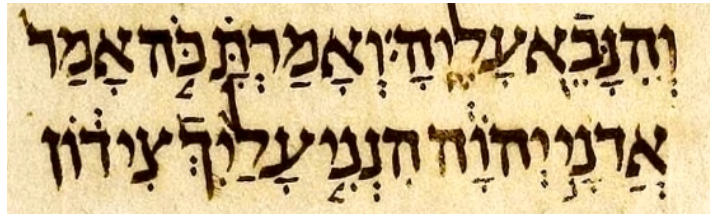 וְהִנָּבֵ֖א עָלֶֽיהָ׃ וְאָמַרְתָּ֗ כֹּ֤ה אָמַר֙
אֲדֹנָ֣י יְהוִ֔ה הִנְנִ֤י עָלַ֙יִךְ֙ צִיד֔וֹן